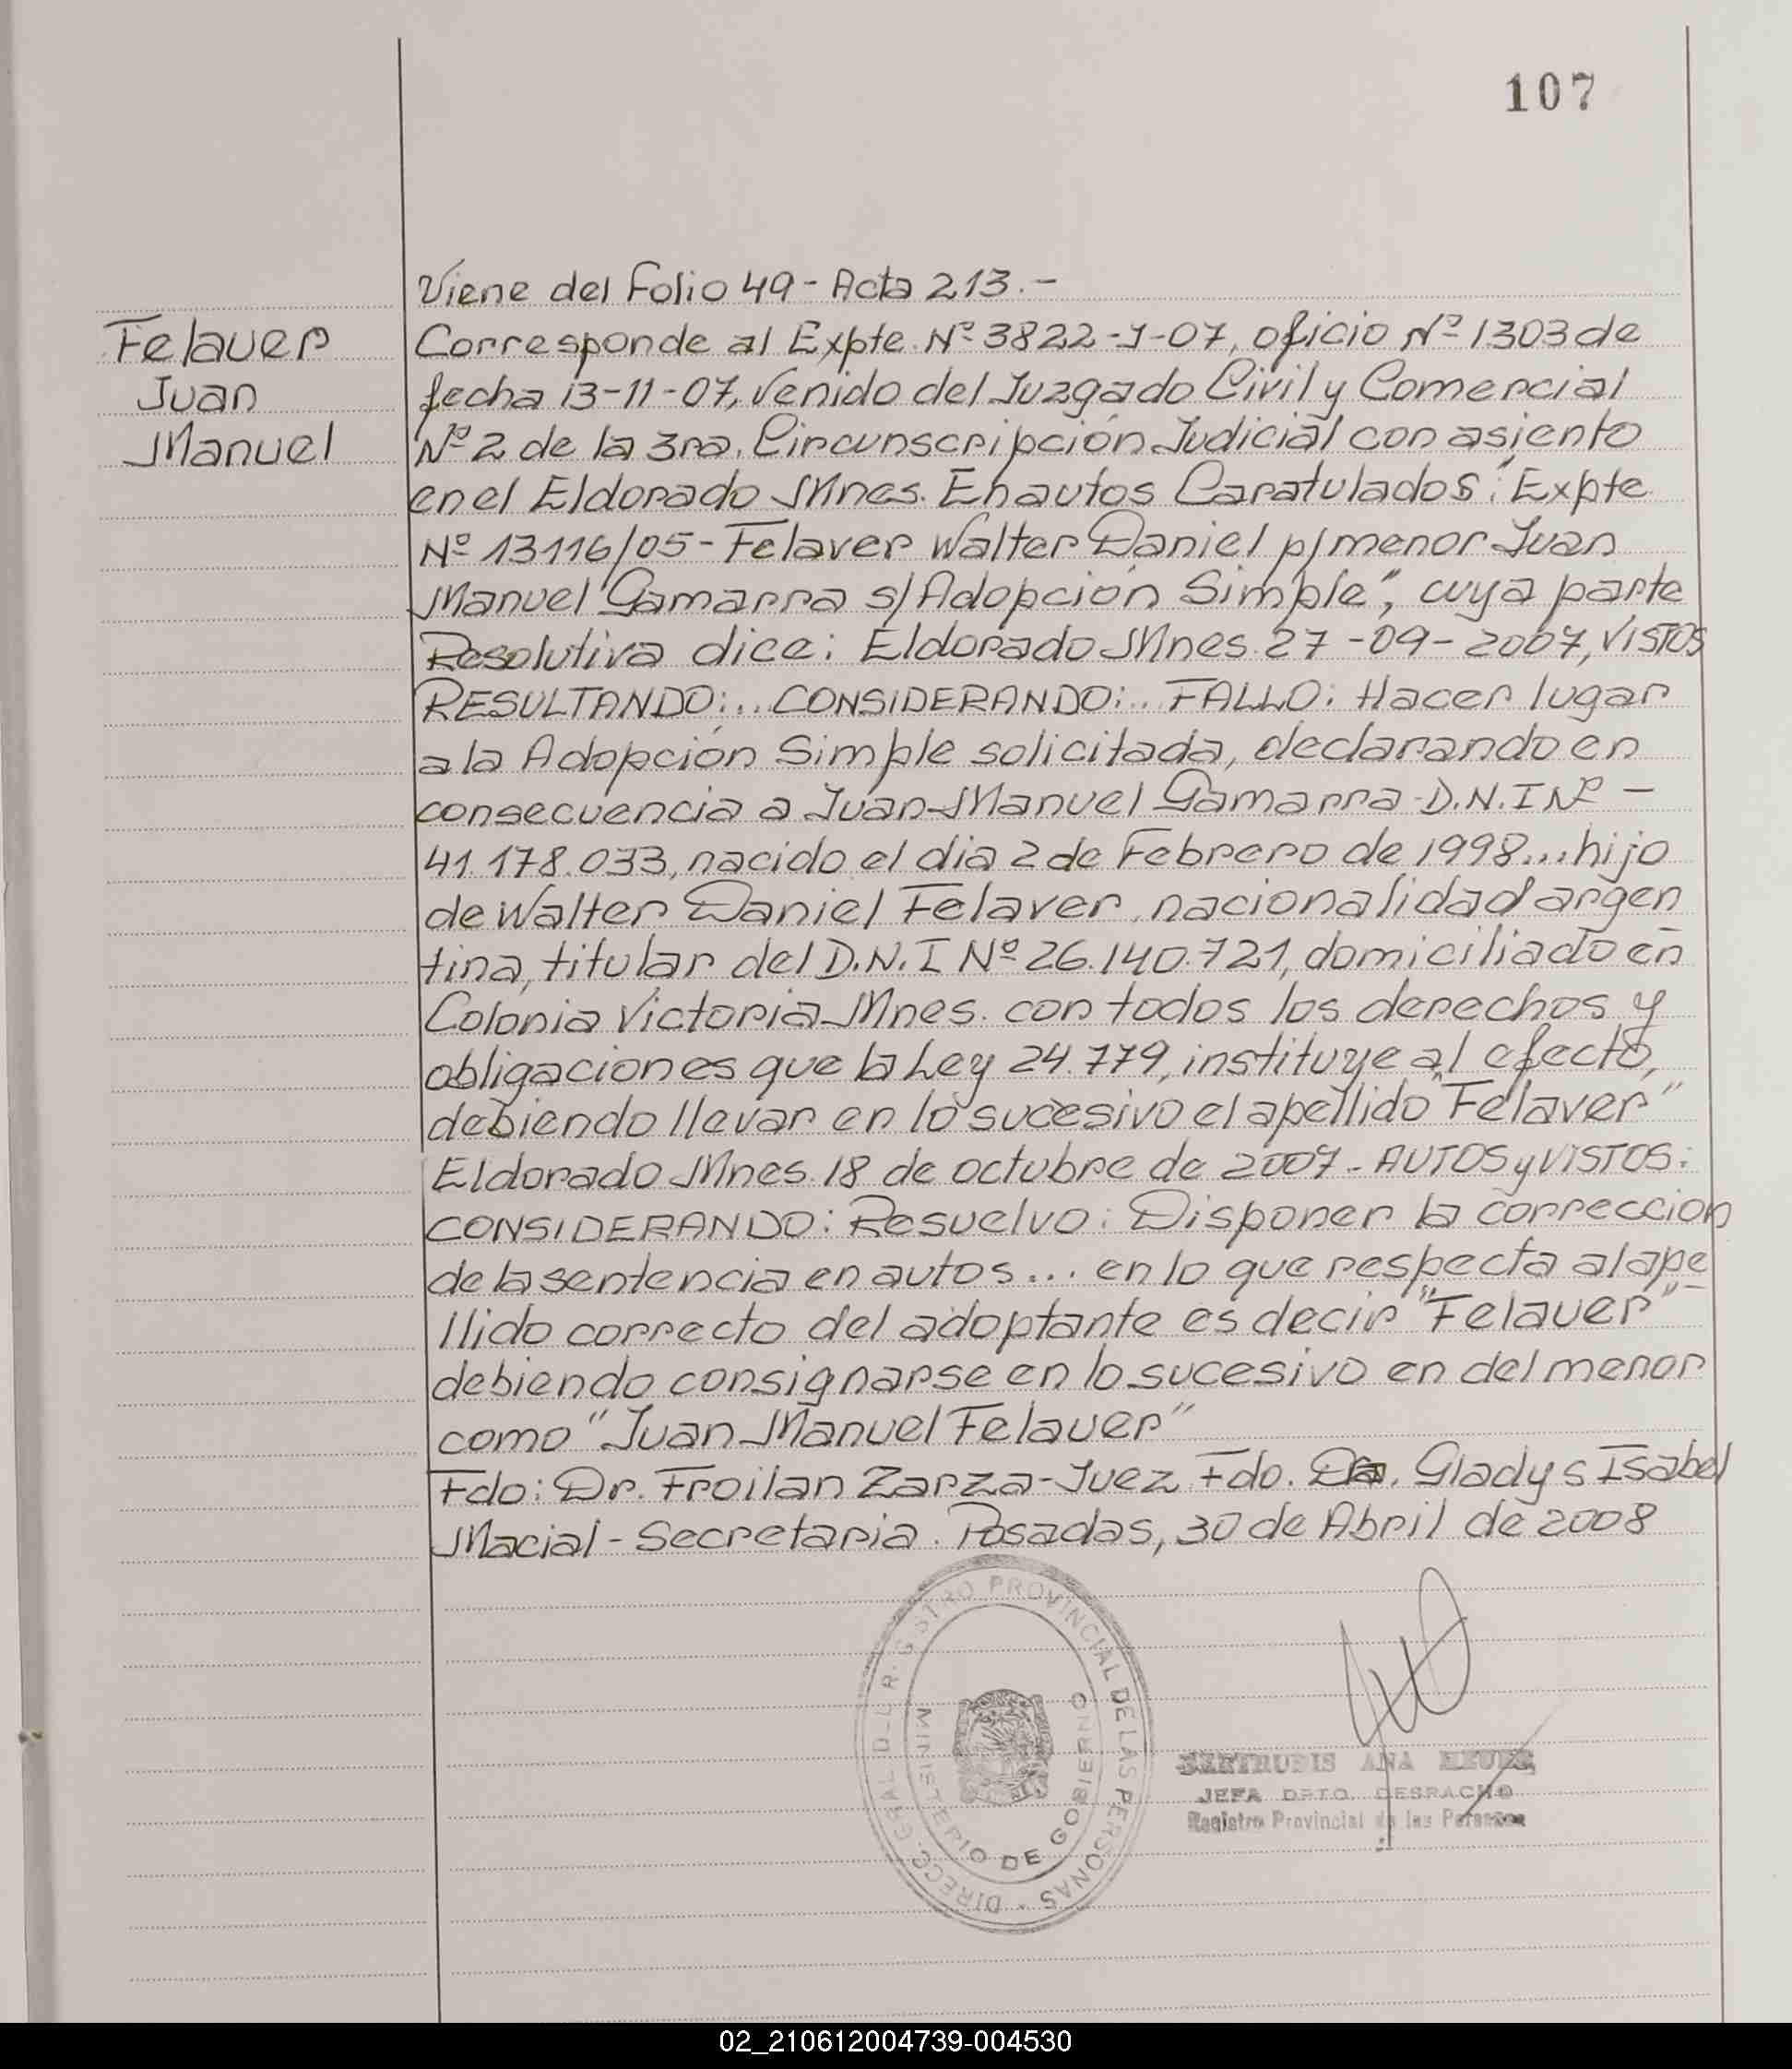 107
Viene del Folio 49 - Acta 213.-
Felauer
Juan
Manuel
Corresponde al Expte. Nº 3822-J-07, oficio Nº 1303 de
fecha 13-11-07, venido del Juzgado Civil y Comercial
Nº 2 de la 3ra. Circunscripción Judicial con asiento
en el Eldorado Mnes. En autos Caratulados: "Expte.
Nº 13116/05 - Felaver Walter Daniel p/menor Juan
Manuel Gamarra s/Adopción Simple", cuya parte
Resolutiva dice: Eldorado Mnes. 27-09-2007, VISTOS
RESULTANDO:... CONSIDERANDO:.. FALLO: Hacer lugar
a la Adopción Simple solicitada, declarando en
consecuencia a Juan Manuel Gamarra D.N.I Nº -
41.178.033, nacido el dia 2 de Febrero de 1998... hijo
de Walter Daniel Felaver, nacionalidad argen
tina, titular del D.N.I Nº 26.140.721, domiciliado en
Colonia Victoria Mnes. con todos los derechos y
obligaciones que la Ley 24.779, instituye al efecto,
debiendo llevar en lo sucesivo el apellido "Felaver"
Eldorado Mnes. 18 de octubre de 2007 - AUTOS y VISTOS:
CONSIDERANDO: Resuelvo: Disponer la correccion
de la sentencia en autos... en lo que respecta al ape
llido correcto del adoptante es decir "Felauer" -
debiendo consignarse en lo sucesivo en del menor
como "Juan Manuel Felauer"
Fdo: Dr. Froilan Zarza - Juez Fdo. Dra. Gladys Isabel
Macial - Secretaria. Posadas, 30 de Abril de 2008
DIRECC. GRAL. DEL REGISTRO PROVINCIAL DE LAS PERSONAS
MINISTERIO DE GOBIERNO
GERTRUDIS ANA
JEFA DPTO. DESPACHO
Registro Provincial de las Personas
02_210612004739-004530